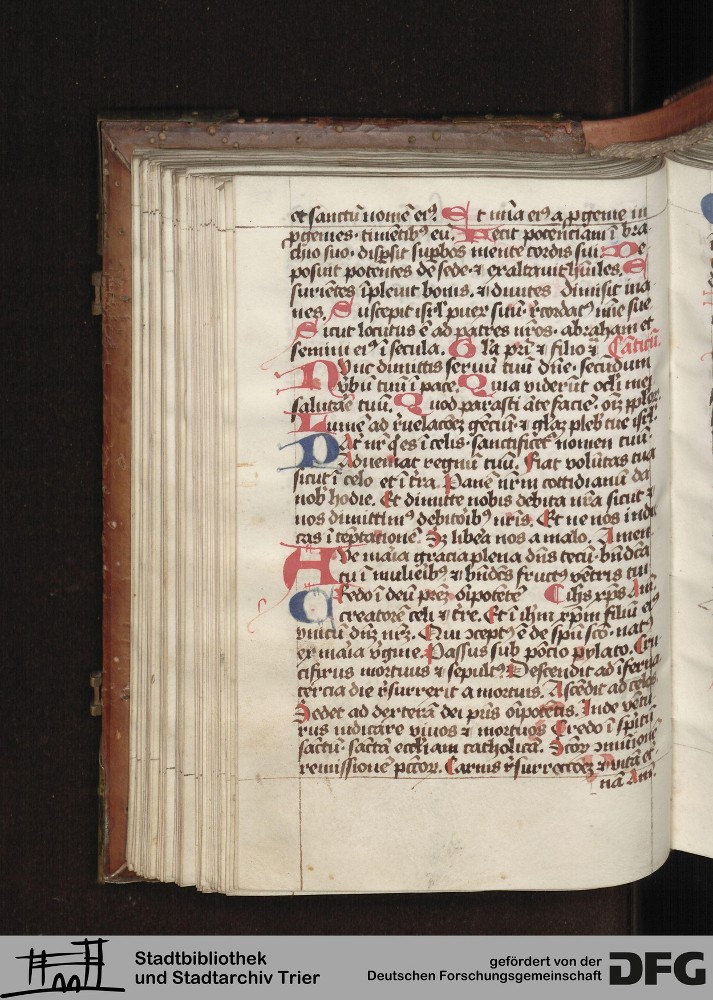 et sanctū nomē eiꝰ Et mīa eiꝰ a ꝓgenie in
ꝓgenies · timētibꝰ eū. Fecit potenciam ī bra
chio suo · disp̄sit supbos mente cordis sui. De
posuit potentes de sede · ⁊ exaltauit hūiles. E
suriētes īpleuit bonis. ⁊ diuites dimisit ina
nes. Suscepit isrl̄ puerū suū · rcordatꝰ mīe sue
Sicut locutus ē ad patres nros · abraham et
semini eiꝰ ī secula. Gl̄a pri ⁊ filio ⁊ Cāticū.
Nunc dimittis seruū tuū dn̄e · secūdum
v̄bū tuū ī pace. Quia viderūt ocl̄i mei
salutare tuū. Quod parasti āte facīe oīm pplor̄
Lumē ad r̄uelacōꝫ gēciū · ⁊ glaꝫ pleb tue isrl̄
Pat nr q es ī celis · sanctificet nomen tuū
Adueniat regnū tuū. Fiat volūtas tua
sicut ī celo et ī tra. Pane nrm cottidianū da
nob hodie. Et dimitte nobis debita nra sicut ⁊
nos dimittimꝰ debitoribꝰ nris. Et ne nos indu
cas ī tēptationē Sꝫ libera nos a malo. Amen
Aue maīa gracia plena dn̄s tecū · bn̄dcā
tu ī mulieībꝰ ⁊ bn̄dcs fructꝰ vētris tui
Credo ī deū prēꝫ oīpotētē Cihs xp̄s Am̄
creatorē celi ⁊ tre. Et ī ihm xp̄m filiū eiꝰ
vnicū dnꝫ nrꝫ. Qui ↄceptꝰ ē de spū scō · natꝰ
ex maīa vgine. Passus sub pōcio pylato. Cru
cifixus mortuus ⁊ sepultꝰ Descendit ad īferna
tercia die r̄surrexit a mortuis. Ascēdit ad celos
Sedet ad dexterā dei pris oīpotētis. Inde vētu
rus iudicare viuos ⁊ mortuos Credo ī spiritū
sāctū · sāctā eccl̄iam catholicā. Scōꝝ ↄmūionē
remissionē pctōꝝ. Carnis r̄surrectōeꝫ ⁊ vitā et
nā Am̄.
Stadtbibliothek
und Stadtarchiv Trier
gefördert von der
Deutschen Forschungsgemeinschaft DFG